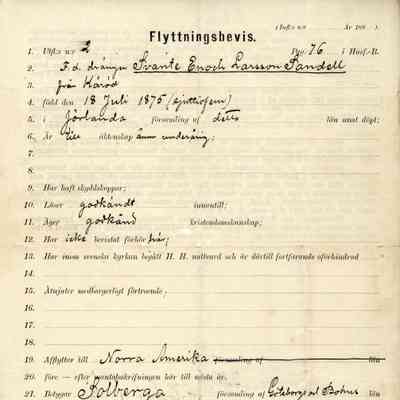 Flyttningsbevis.
1. Utfl. n:r 2 Pag. 76 i Husf.-B.
2. F. d. drängen Svante Enoch Larsson Sandell
3. från Kåröd
4. född den 18 Juli 1875 (sjuttiofem)
5. i Jörlanda församling af detta län samt döpt;
6. Är till äktenskap ännu underårig;
7.
8.
9. Har haft skyddskoppor;
10. Läser godkändt innentill;
11. Äger godkänd kristendomskunskap;
12. Har icke bevistat förhör här;
13. Har inom svenska kyrkan begått H. H. nattvard och är därtill fortfarande oförhindrad
14.
15. Åtnjuter medborgerligt förtroende;
16.
17.
18.
19. Afflyttar till Norra Amerika församling af län
20. före — efter mantalsskrifningen hör till nästa år.
21. Betygar Solberga församling af Göteborgs o. Bohus län